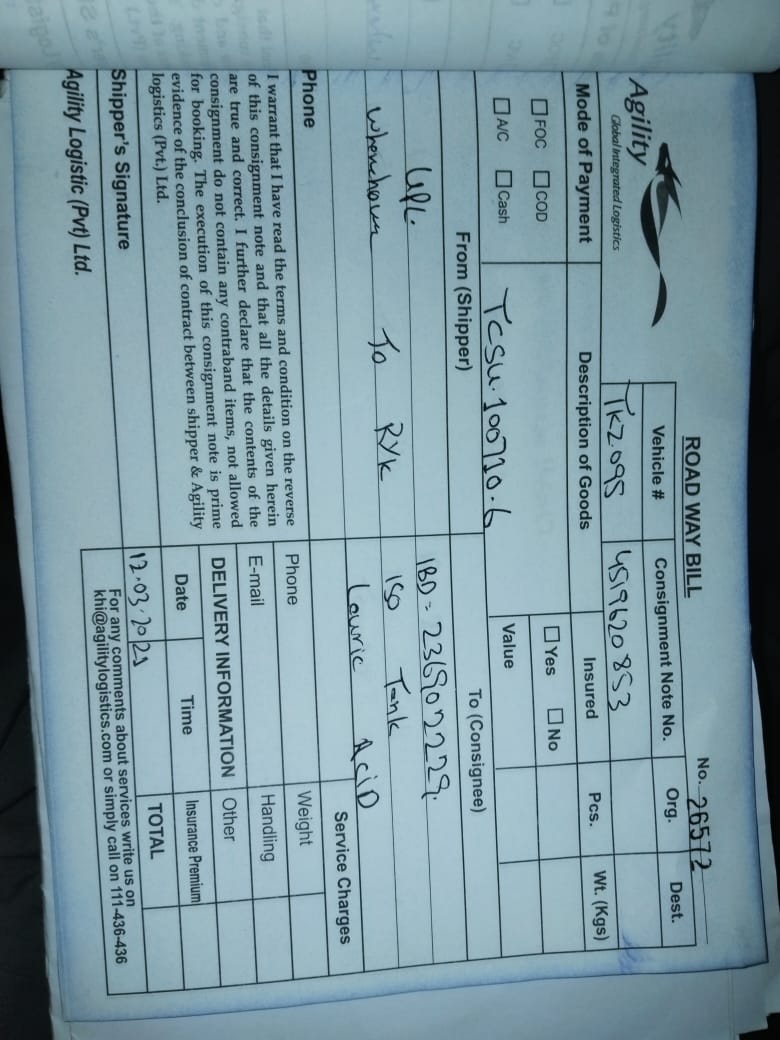 ROAD WAY BILL
No. 26572
Agility
Global Integrated Logistics
Vehicle #
Consignment Note No.
Org.
Dest.
TKZ.095
4519620853
Mode of Payment
Description of Goods
Insured
Pcs.
Wt. (Kgs)
FOC
COD
Yes
No
A/C
Cash
TCSU.100710.6
Value
From (Shipper)
To (Consignee)
UPL.
IBD = 236902229.
To RYK
ISO Tank
Lauric AciD
Phone
Service Charges
I warrant that I have read the terms and condition on the reverse
of this consignment note and that all the details given herein
are true and correct. I further declare that the contents of the
consignment do not contain any contraband items, not allowed
for booking. The execution of this consignment note is prime
evidence of the conclusion of contract between shipper & Agility
logistics (Pvt.) Ltd.
Phone
Weight
E-mail
Handling
DELIVERY INFORMATION
Other
Date
Time
Insurance Premium
12.03.2021
TOTAL
Shipper's Signature
For any comments about services write us on
khi@agilitylogistics.com or simply call on 111-436-436
Agility Logistic (Pvt) Ltd.